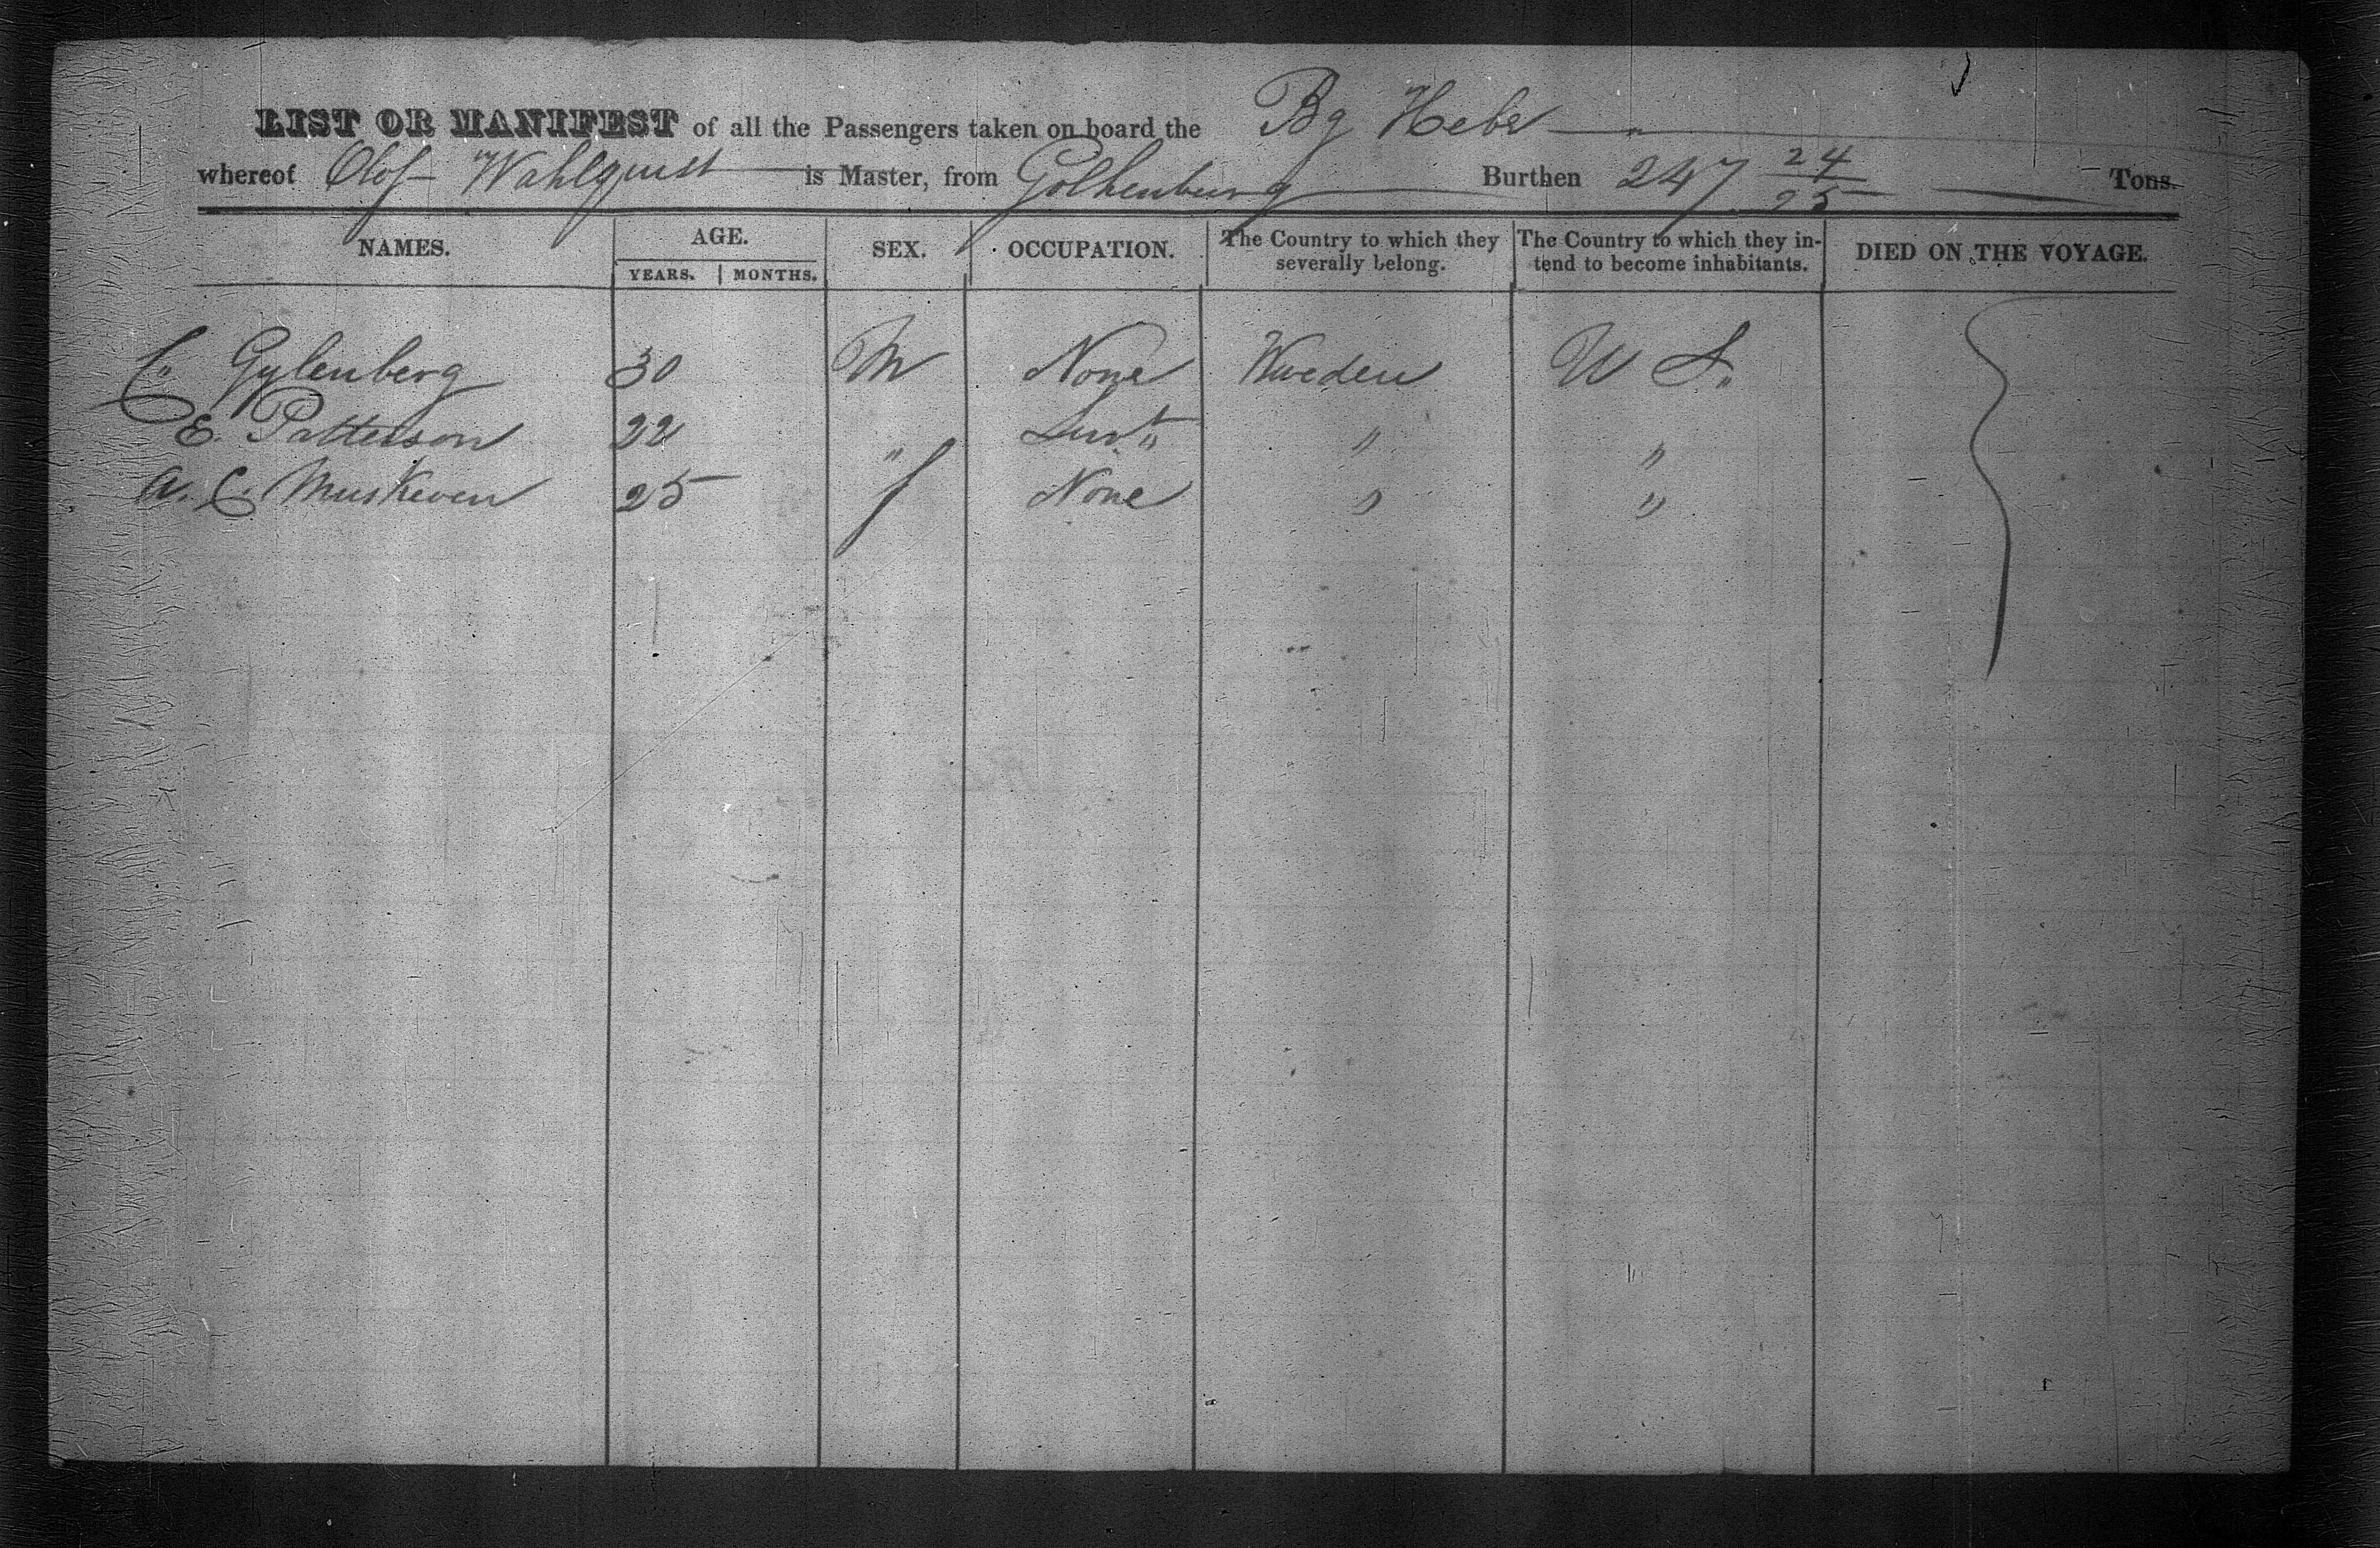 LIST OR MANIFEST of all the Passengers taken on board the Bg Hebe
whereof Olof Wahlquist is Master, from Gothenburg Burthen 247 24/95 Tons.
NAMES. AGE. SEX. OCCUPATION. The Country to which they severally belong. The Country to which they intend to become inhabitants. DIED ON THE VOYAGE.
YEARS. MONTHS.
C. Gylenberg 30 M None Sweden U S.
E. Patterson 22 " Servt " "
A. C. Muskeven 25 f None " "